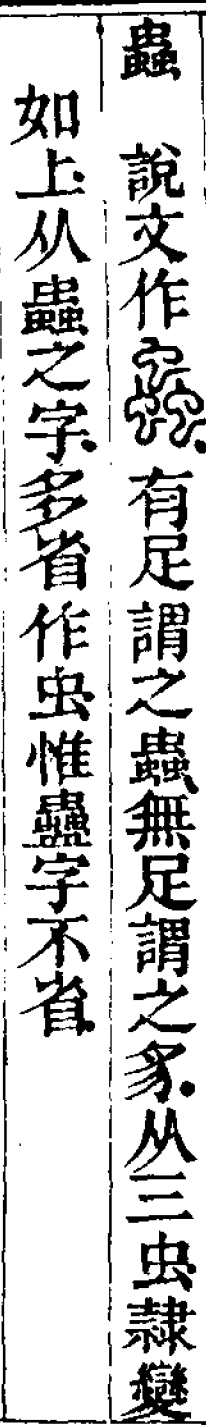 蟲 說文作𧖅有足謂之蟲無足謂之豸从三虫隸變
如上从蟲之字多省作虫惟蠱字不省